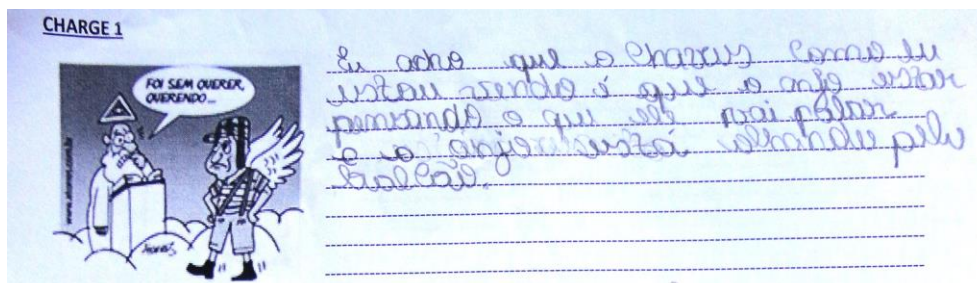 CHARGE 1
FOI SEM QUERER,
QUERENDO...
www.
Eu acho que o Chaves como eu
estou vendo é que o anjo estar
pensando o que ele vai falar
e o anjo está olhando pelo
balão.